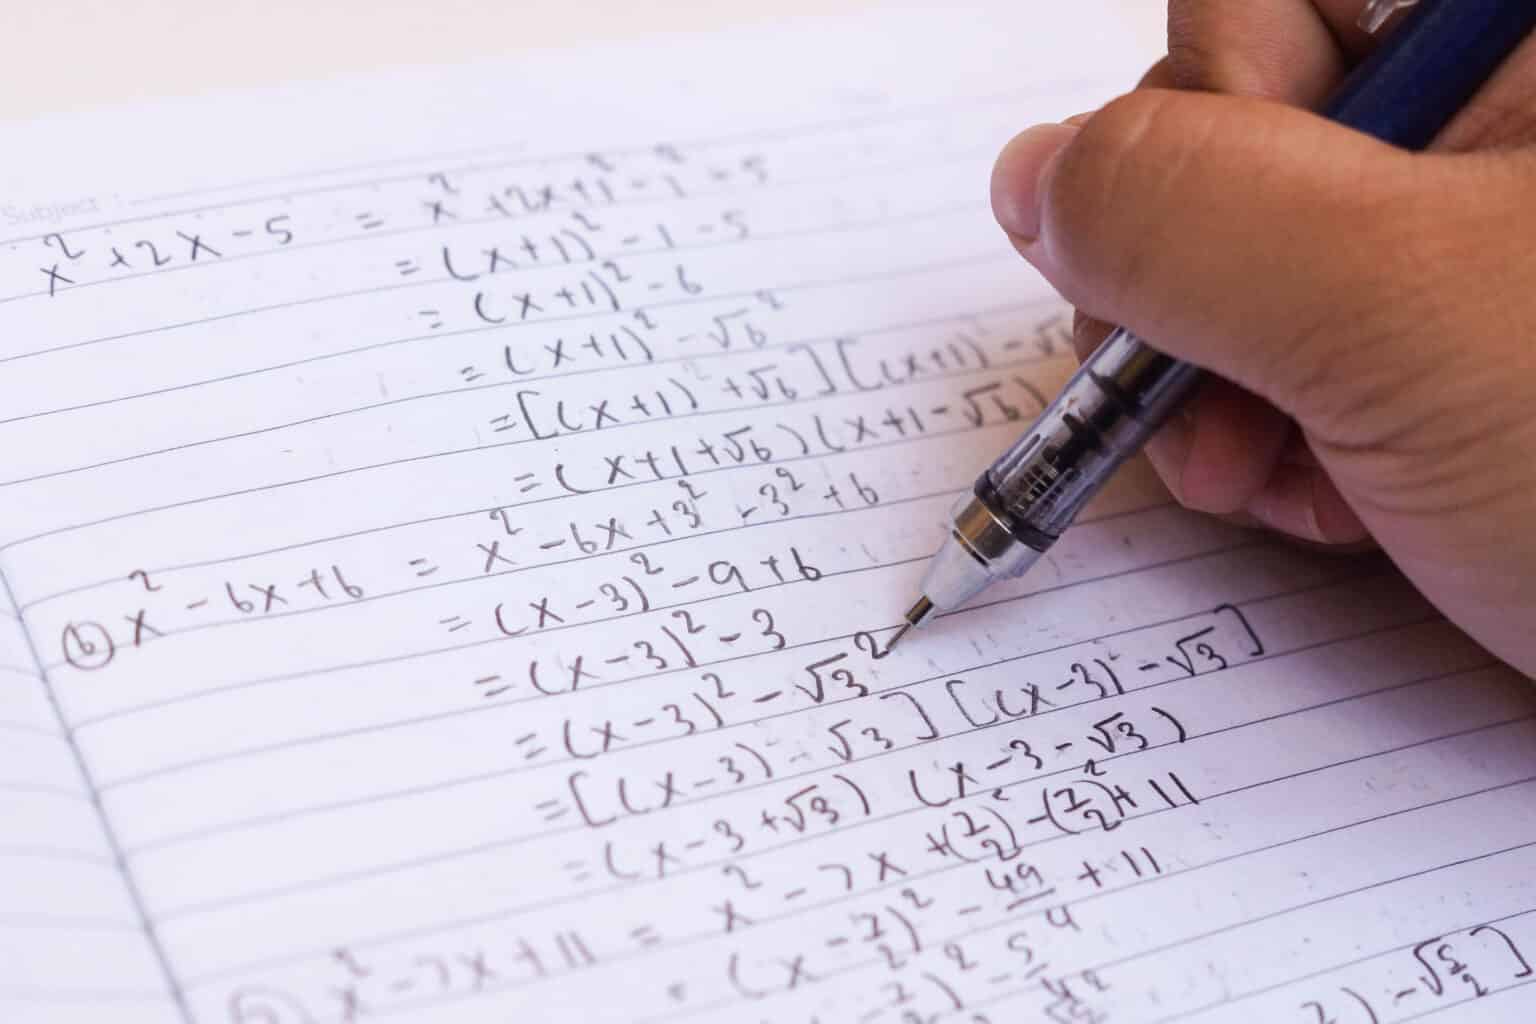 Subject :
x² + 2x - 5 = x² + 2x + 1² - 1² - 5
= (x+1)² - 1 - 5
= (x+1)² - 6
= (x+1)² - √6²
= [(x+1) + √6] [(x+1) - √6
= (x+1+√6) (x+1-√6)
(b) x² - 6x + 6 = x² - 6x + 3² - 3² + 6
= (x-3)² - 9 + 6
= (x-3)² - 3
= (x-3)² - √3²
= [(x-3) - √3] [(x-3) - √3]
= (x-3+√3) (x-3-√3)
x² - 7x + 11 = x² - 7x + (7/2)² - (7/2)² + 11
= (x - 7/2)² - 49/4 + 11
- 7/2)² - 5/4
) - √5/2]